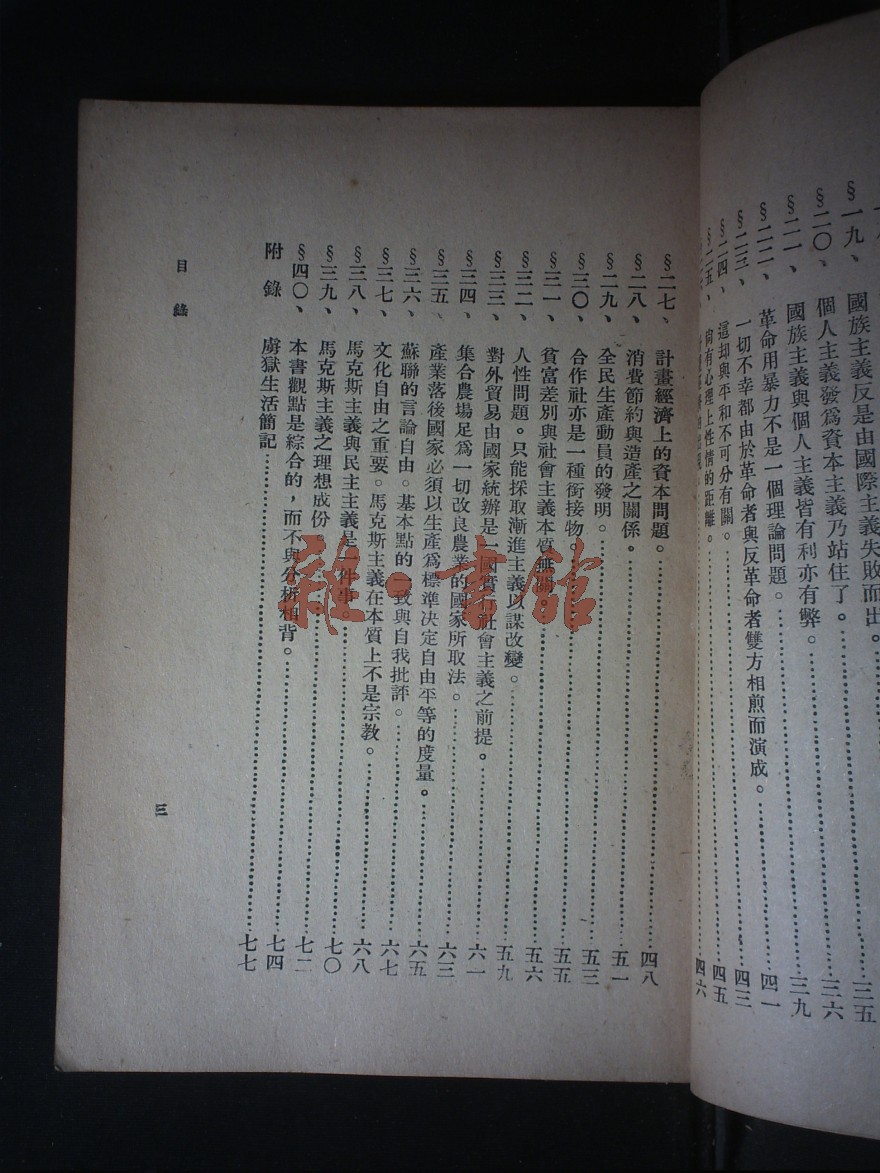 §一九、國族主義反是由國際主義失敗而出。……三五
§二〇、個人主義發爲資本主義乃站住了。……三六
§二一、國族主義與個人主義皆有利亦有弊。……三九
§二二、革命用暴力不是一個理論問題。……四一
§二三、一切不幸都由於革命者與反革命者雙方相煎而演成。……四三
§二四、這却與平和不可分有關。……四五
§二五、尙有心理上性情的距離。……四六
§二七、計畫經濟上的資本問題。……四八
§二八、消費節約與造產之關係。……五一
§二九、全民生產動員的發明。……五三
§三〇、合作社亦是一種銜接物……五五
§三一、貧富差別與社會主義本質無關……五六
§三二、人性問題。只能採取漸進主義以謀改變。……五九
§三三、對外貿易由國家統辦是一國實行社會主義之前提。……六一
§三四、集合農場足爲一切改良農業的國家所取法。……六三
§三五、產業落後國家必須以生產爲標準決定自由平等的度量。……六五
§三六、蘇聯的言論自由。基本點的一致與自我批評。……六七
§三七、文化自由之重要。馬克斯主義在本質上不是宗教。……六八
§三八、馬克斯主義與民主主義是一件事。……七〇
§三九、馬克斯主義之理想成份……七二
§四〇、本書觀點是綜合的，而不與分析相背。……七四
附錄 虜獄生活簡記……七七
目錄
三
雜·書館